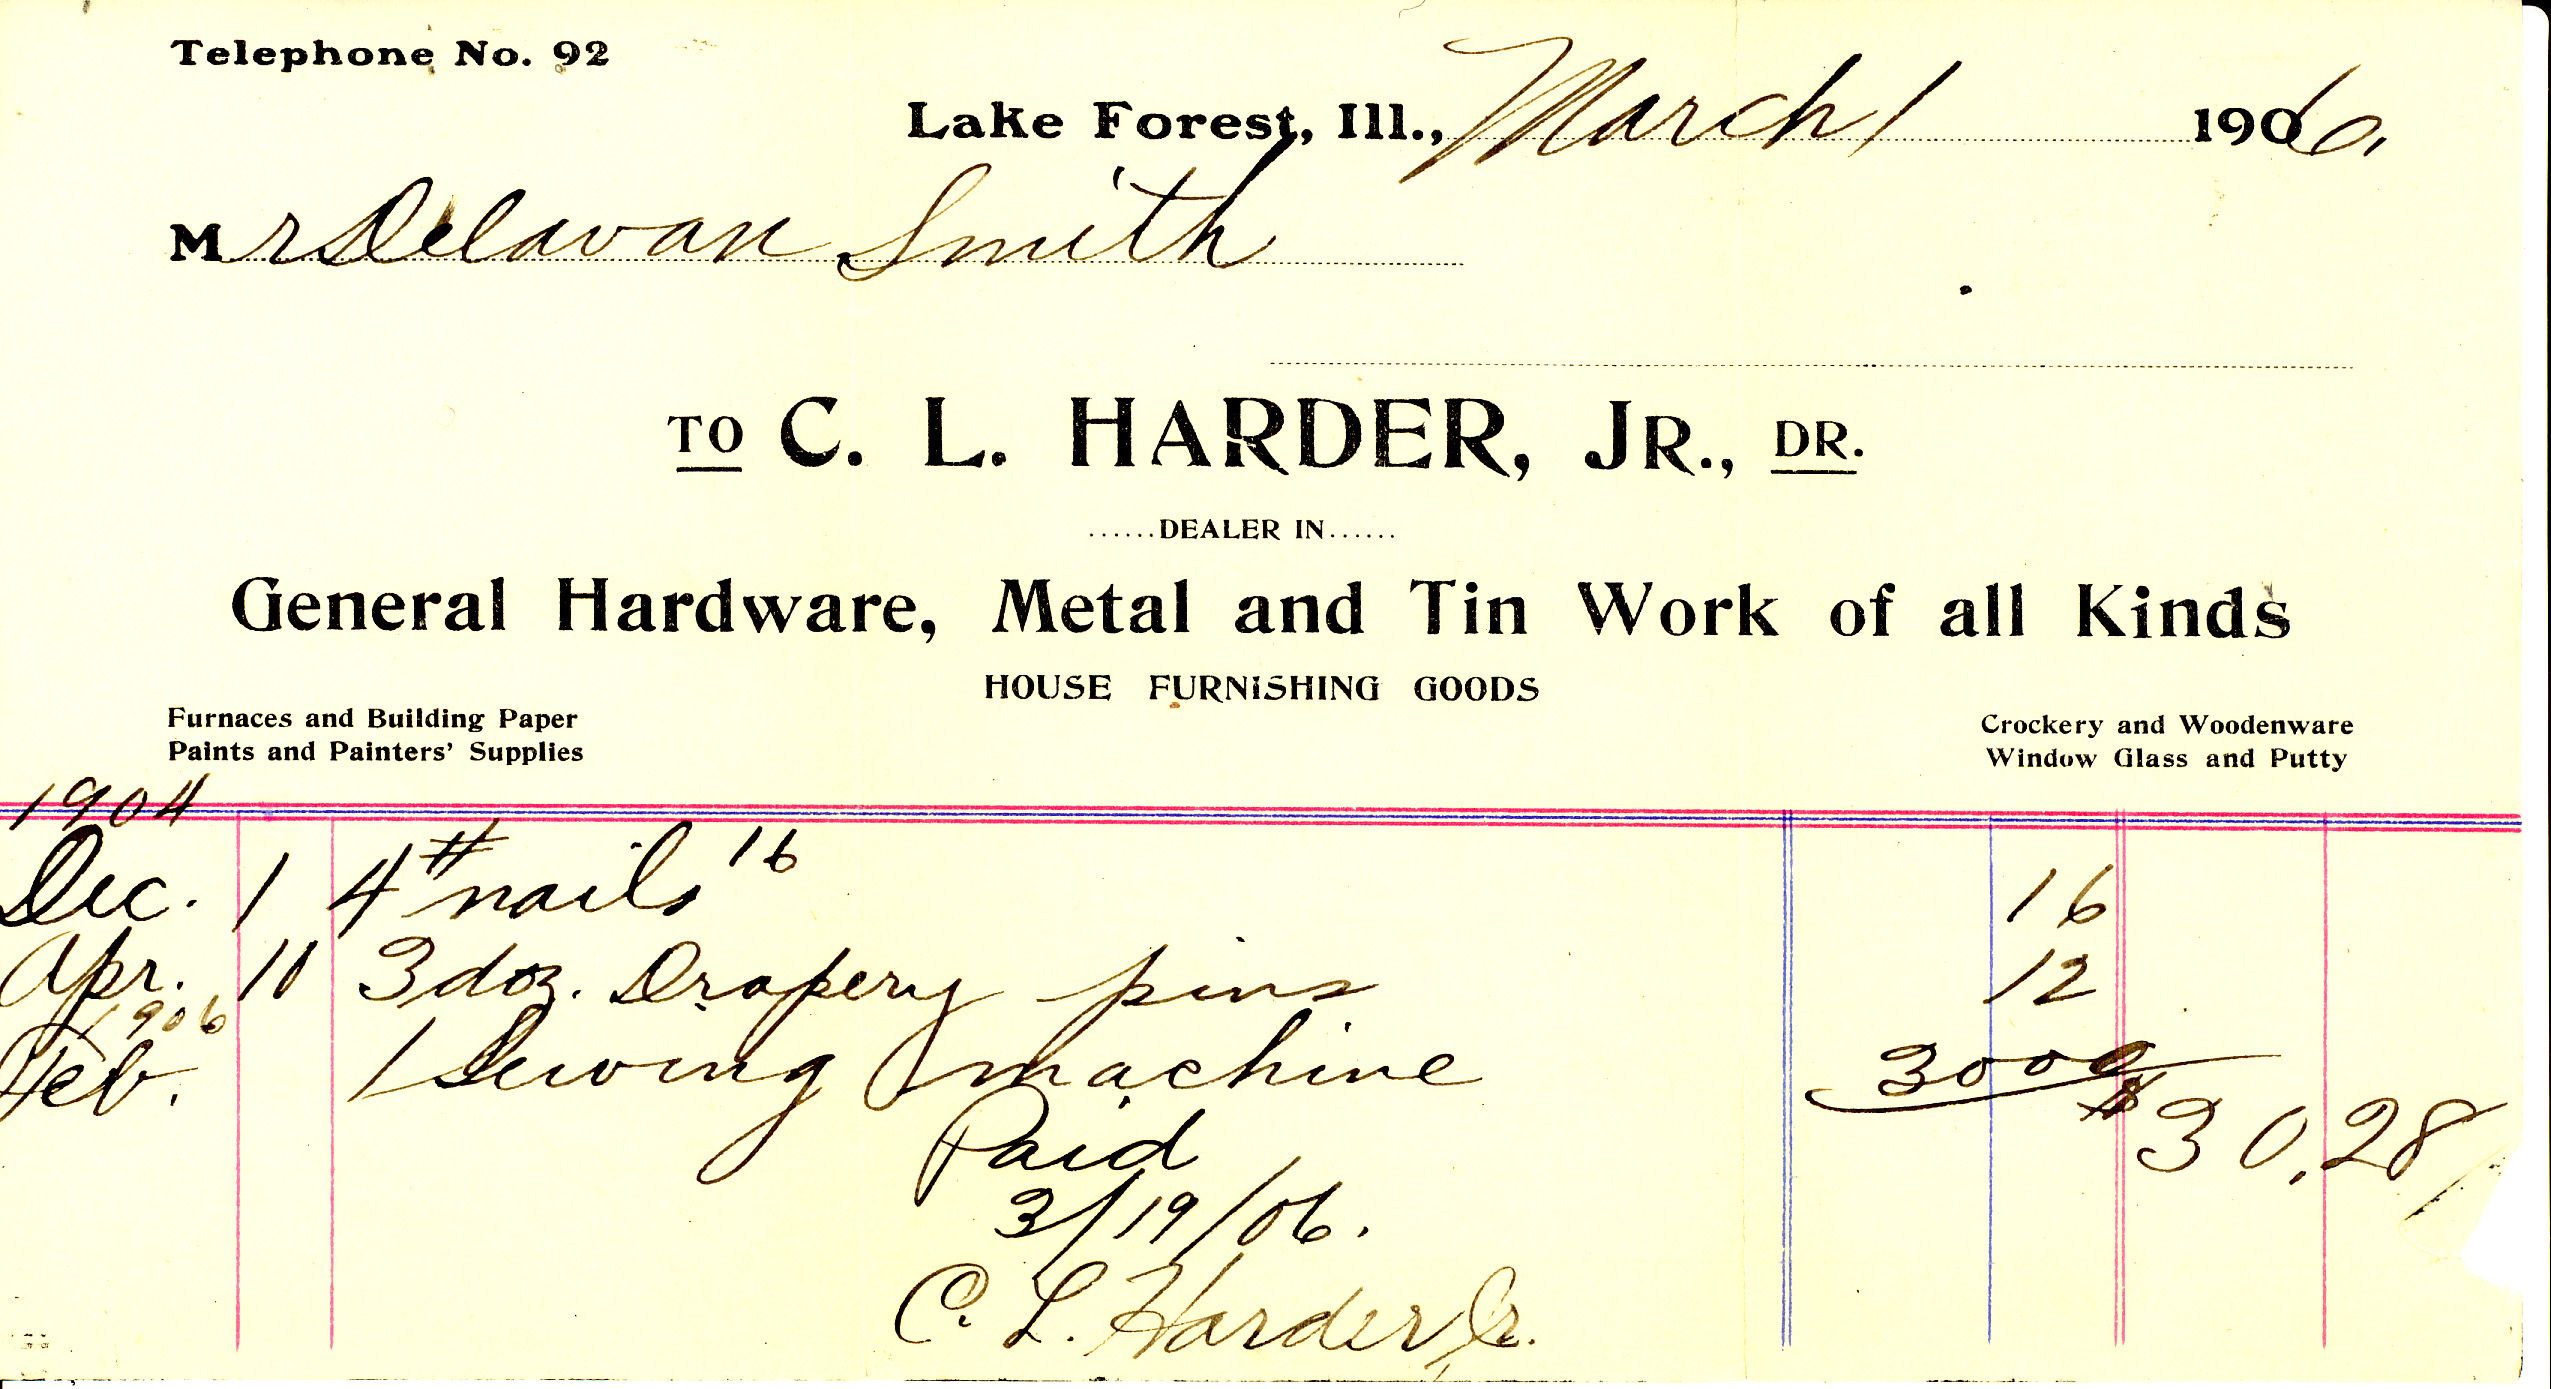 Telephone No. 92
Lake Forest, Ill., March 1 1906.
Mr Delavan Smith
TO C. L. HARDER, JR., DR.
......DEALER IN......
General Hardware, Metal and Tin Work of all Kinds
HOUSE FURNISHING GOODS
Furnaces and Building Paper
Paints and Painters' Supplies
Crockery and Woodenware
Window Glass and Putty
1904
Dec. 1 4# nails 16 16
Apr. 11 3 doz. Drapery pins 12
1906
Feb. 1 Sewing machine 3000
$30.28
Paid
3/19/06.
C. L. Harder, Jr.